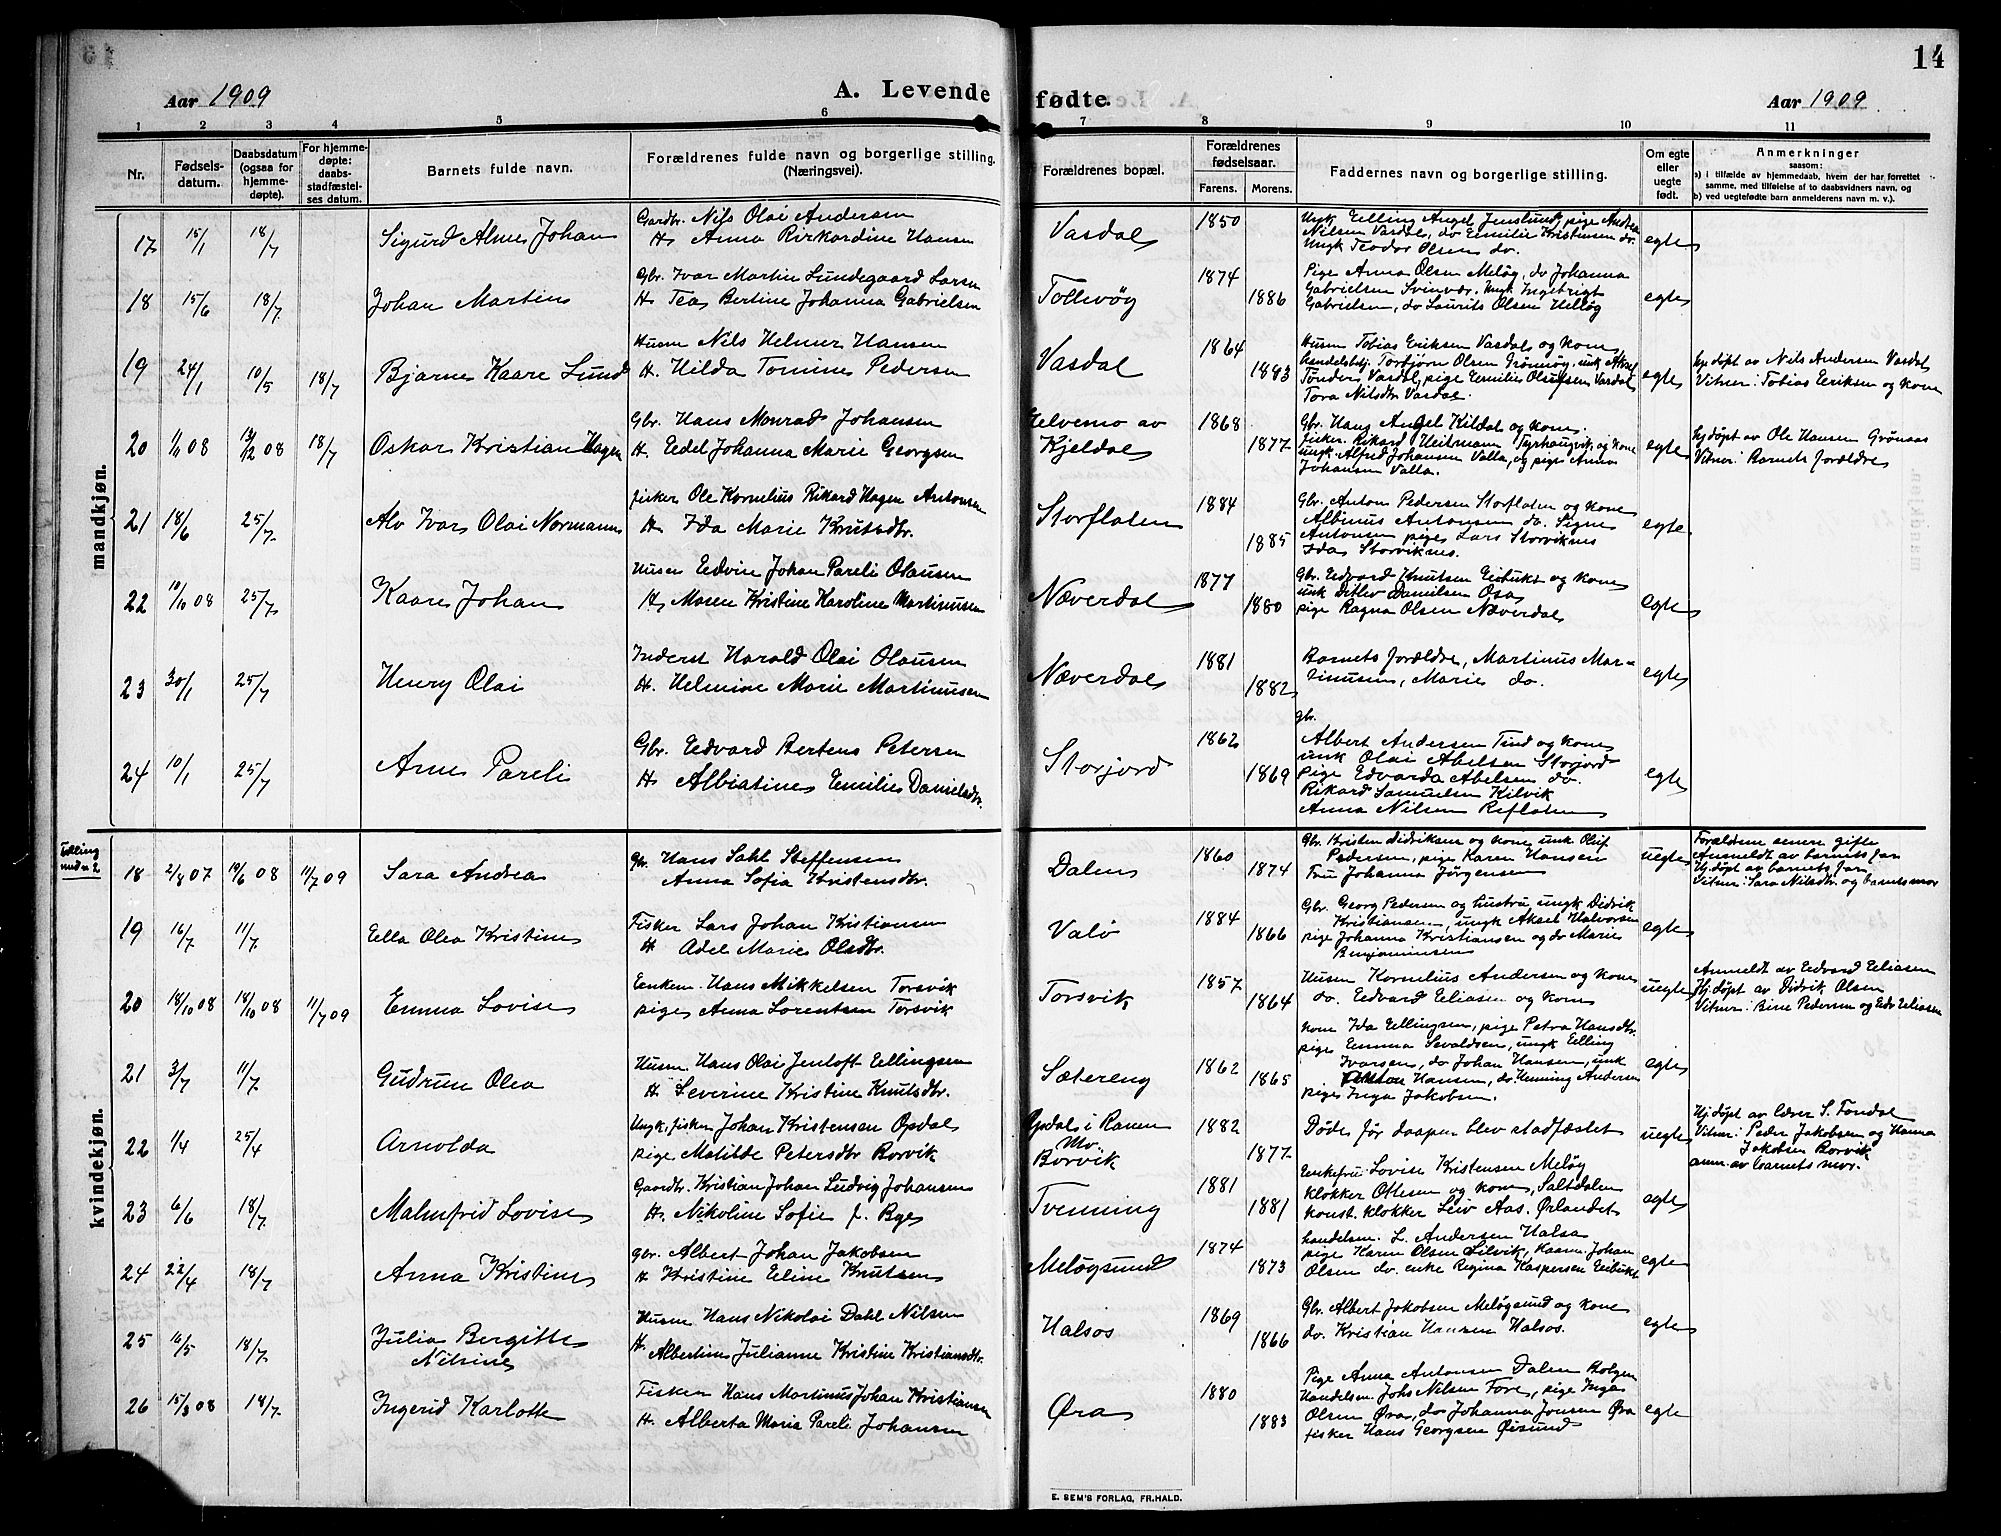 14
Aar 1909
A. Levende fødte.
Aar 1909.
1 2 3 4 5 6 7 8 9 10 11
Nr.
Fødsels-
datum.
Daabsdatum
(ogsaa for
hjemme-
døpte).
For hjemme-
døpte:
daabs-
stadfæstel-
ses datum.
Barnets fulde navn.
Forældrenes fulde navn og borgerlige stilling.
(Næringsvei).
Forældrenes bopæl.
Forældrenes
fødselsaar.
Farens. Morens.
Faddernes navn og borgerlige stilling.
Om egte
eller
uegte
født.
Anmerkninger
saasom:
a) i tilfælde av hjemmedaab, hvem der har forrettet
samme, med tilføielse af to daabsvidners navn, og
b) ved uegtefødte barn anmelderens navn m. v.).
mandkjøn.
17 15/1 18/7 Sigurd Johan
Gardbr. Nils Olai Andersen
H. Anna Rirkardine Hansen
Vasdal 1850
Ungk Elling Angel Jenslund, pige Andrea
Nilsen Vasdal, do Emilie Kristensen do.
Ungk Teodor Olsen do.
egte
18 15/6 18/7 Johan Martin
Gbr. Ivar Martin Lundegaard Larsen
H. Tea Bertine Johanna Gabrielsen
1874 1886
Pige Anna Olsen Meløg, do Johanna
Gabrielsen Svinvær. Ungk Ingebrigt
Gabrielsen, do Laurits Olsen
egte
19 24/1 10/5 18/7 Bjarne Kaare Lund
Husm Nils Helmer Hansen
H. Hilda Tomine Pedersen
Vasdal 1864 1883
Husm Tobias Eriksen Vasdal og kone
Torbjørn Olsen Grønnøg, unk Aksel
Tønder Vasdal, pige Emilie Olufsen Vasdal
Tora Nilsdtr Vasdal.
egte
hj døpt av Nils Andersen Vasdal
Vitner: Tobias Eriksen og kone
20 1/11 08 13/12 08 18/7 Oskar Kristian Hagen
Gbr. Hans Monrad Johansen
H. Edel Johanna Marie Georgsen
Elvemo av
Kjeldal
1868 1877
Gbr. Hans Angel Kildal og kone.
fisker. Rikard Heitmann Tyrhaugvik, og kone
ungk Alfred Johansen Valla, og pige Anna
Johansen Valla.
egte
hj døpt av Ole Hansen Grønaas
Vitner: Barnets forældre
21 18/6 25/7 Alv Ivar Olai Normann
fisker Ole Kornelius Rikard Hagen Antonsen
H. Ida Marie Knutsdtr.
Storflaten 1884 1885
Gbr. Anton Pedersen Storflaten og kone
Albinus Antonsen do. Signe
Antonsen pige, Lars Storviknes
Ida Storviknes.
egte
22 10/10 08 25/7 Kaare Johan
Husm Edvin Johan Pareli Olausen
H. Maren Kristine Karoline Martinusen
Næverdal 1877 1880
Gbr. Edvard Knutsen Eibukt og kone
unk Ditlev Danielsen Osa
pige Ragna Olsen Næverdal
egte
23 30/1 25/7 Henry Olai
Inderst Harald Olai Olausen
H. Helmine Marie Martinusen
Næverdal 1881 1882
Barnets forældre, Martinus Mar-
tinusen, Marie do.
egte
24 10/1 25/7 Arne Pareli
Gbr. Edvard Bertens Petersen
H. Albiatine Emilie Danielsdtr.
Storjord 1862 1869
gbr.
Albert Andersen Tind og kone
unk Olai Abelsen Storjord
pige Edvarda Abelsen do.
Rikard Samuelsen Kilvik
Anna Nilsen Reflaten
egte
kvindekjøn.
18 2/8 07 19/6 08 11/7 09 Sara Andrea
Gbr. Hans Dahl Steffensen
Anna Sofia Kristensdtr.
Dalen 1860 1874
Gbr. Kristen Didriksen og kone, unk Oluf
Pedersen, pige Karen Hansen
Fru Johanna Jørgensen
uegte
Forældrene senere gifte
Anmeldt av barnets far
Hj døpt av barnets far
Vitner: Sara Nilsdtr. og barnets mor
19 16/7 11/7 Ella Olea Kristine
Fisker Lars Johan Kristiansen
H. Adel Marie Olsdtr.
Valø 1884 1866
Gbr. Georg Pedersen og hustru, ungk Didrik
Kristiansen, ungk Aksel Halvorsen
pige Johanna Kristiansen og do Marie
Benjaminsen
egte
20 18/10 08 18/10 08 11/7 09 Emma Lovise
Enkem. Hans Mikkelsen Torsvik
pige Anna Lorentsen Torsvik
Torsvik 1857 1864
Husm Kornelius Andersen og kone
do. Edvard Eliasen og kone
uegte
Anmeldt av Edvard Eliasen
Hj. døpt av Didrik Olsen
Vitner: Pedersen og Edv Eliasen
21 3/7 11/7 Gudrun Olea
Husm Hans Olai Jentoft Ellingsen
H. Severine Kristine Knutsdtr.
Sætereng 1862 1865
kone Ida Ellingsen, pige Petra Hansdtr.
pige Emma Sevaldsen, ungk Elling
Ivarsen, do Johan Hansen, unk
Hansen, do Henning Andersen
pige Inga Jakobsen.
egte
22 1/4 25/4 Arnolda
Ungk, fisker Johan Kristensen Opdal
pige Matilde Petersdtr Borvik
Opdal i Ranen
Mo
Borvik
1882 1877
Døde før daapen blev stadfæstet
uegte
Hj. døpt av lærer S. Fondal
Vitner: Peder Jakobsen og Hanna
Jakobsen Borvik
anm. av barnets mor.
23 6/6 18/7 Malmfrid Lovise
Gaardbr. Kristian Johan Ludvig Johansen
H. Nikoline Sofie f. Bye
Tvenning 1881 1881
Enkefru Lovise Kristensen Meløg
klokker Ottesen og kone, Saltdalen
konst. klokker Leiv Aas. Ørlandet
egte
24 22/4 18/7 Anna Kristine
gbr. Albert Johan Jakobsen
H Kristine Eline Knutsen
Meløgsund 1874 1873
handelsm. L. Andersen Halsa
pige Karen Olsen Selvik, Kasm. Johan
Olsen do. enke Regina Kaspersen Eibukt
egte
25 16/5 18/7 Julia Bergitte
Nilsine
Husm Hans Nikolai Dahl Nilsen
H. Albertine Julianne Kristine Kristiansdtr.
Halsos 1869 1866
Gbr. Albert Jakobsen Meløgsund og kone
do. Kristian Hansen Halsos.
egte
26 15/3 08 18/7 Ingerid Karlotte
Fisker Hans Martinus Johan Kristiansen
H. Alberta Maria Pareli Johansen
Øra 1880 1883
Pige Anna Antonsen Dalen Bolgen
Handelsm. Johs Nilsen Fore, pige Inga
Olsen Øra, do Johanna Jensen Øra
fisker Hans Georgsen Øisund
egte
E. SEM'S FORLAG, FR.HALD.